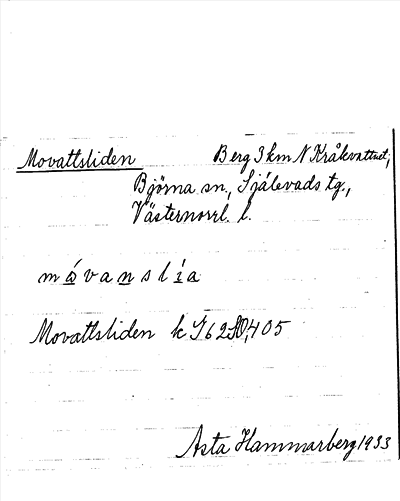 Movattsliden Berg 3 km N Kråkvattnet,
Björna sn., Själevads tg.,
Västernorrl. l.
måvanslia
Movattsliden k S 62 SO, 405
Asta Hammarberg 1933